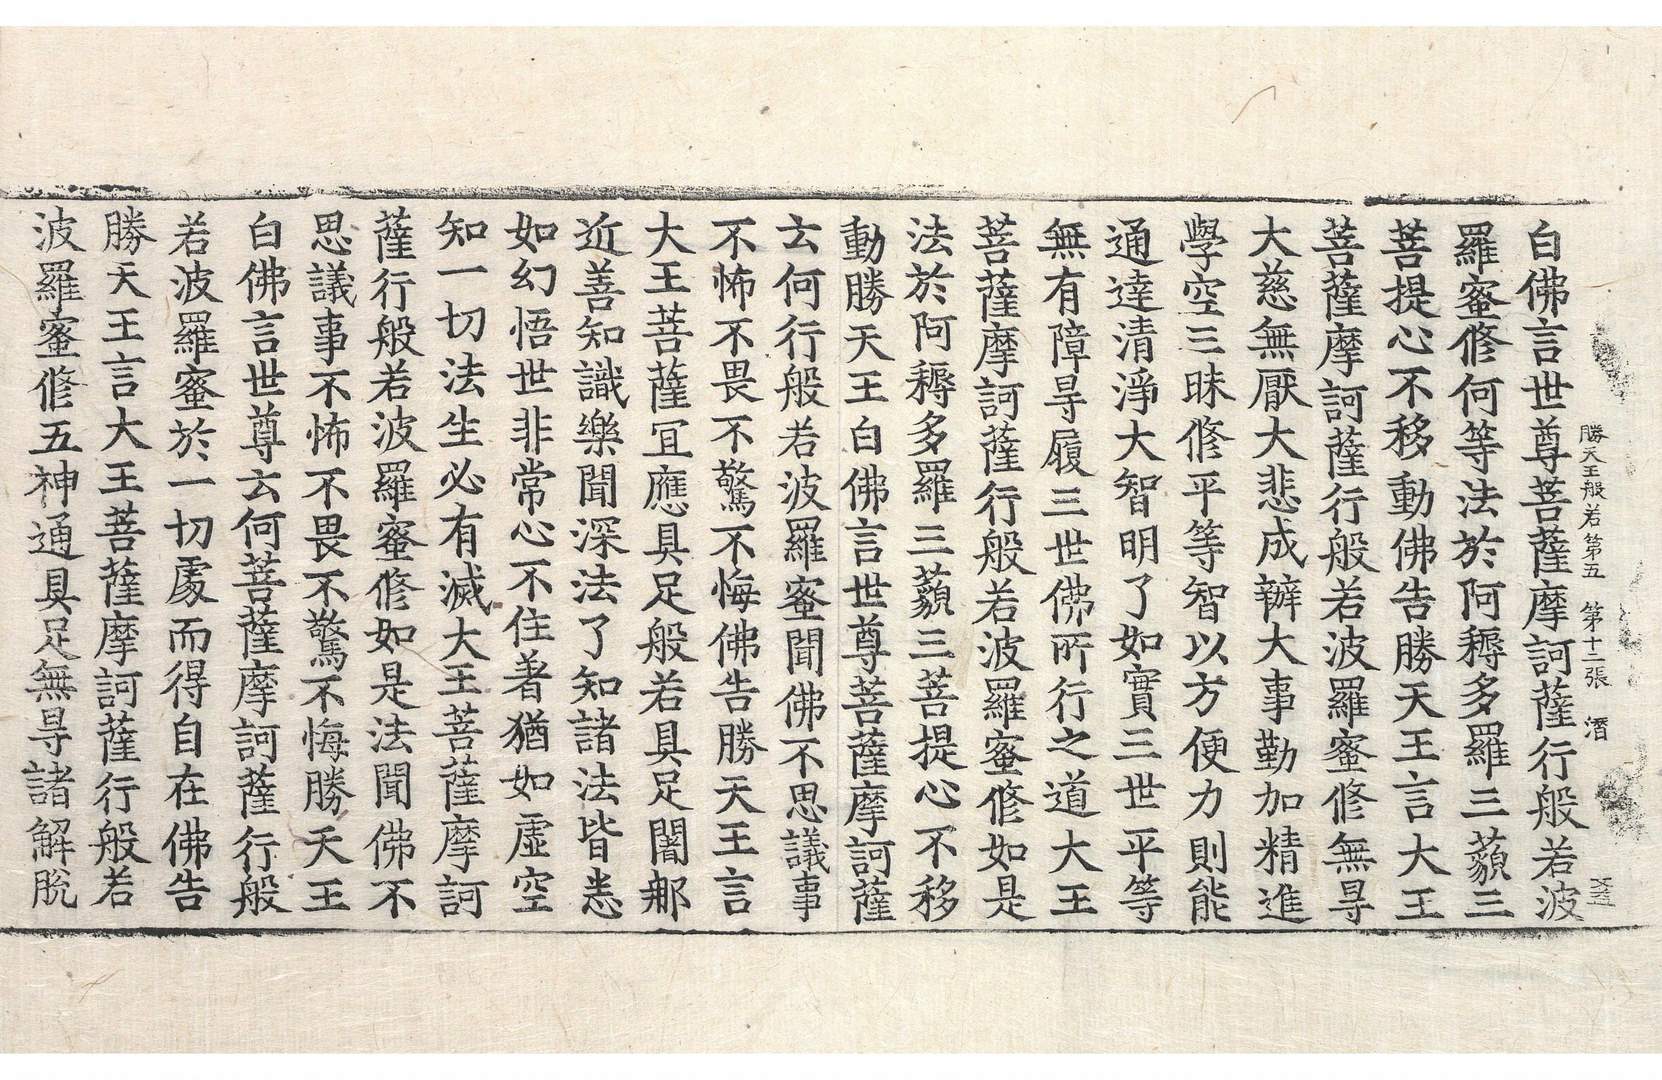 勝天王般若第五 第十二張 潛
白佛言世尊菩薩摩訶薩行般若波
羅蜜修何等法於阿耨多羅三藐三
菩提心不移動佛告勝天王言大王
菩薩摩訶薩行般若波羅蜜修無㝵
大慈無厭大悲成辦大事勤加精進
學空三昧修平等智以方便力則能
通達清淨大智明了如實三世平等
無有障㝵履三世佛所行之道大王
菩薩摩訶薩行般若波羅蜜修如是
法於阿耨多羅三藐三菩提心不移
動勝天王白佛言世尊菩薩摩訶薩
云何行般若波羅蜜聞佛不思議事
不怖不畏不驚不悔佛告勝天王言
大王菩薩冝應具足般若具足闍那
近善知識樂聞深法了知諸法皆悉
如幻悟世非常心不住著猶如虛空
知一切法生必有滅大王菩薩摩訶
薩行般若波羅蜜修如是法聞佛不
思議事不怖不畏不驚不悔勝天王
白佛言世尊云何菩薩摩訶薩行般
若波羅蜜於一切處而得自在佛告
勝天王言大王菩薩摩訶薩行般若
波羅蜜修五神通具足無㝵諸解脫